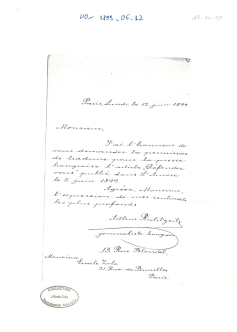 HOn 1899_06-12
Paris, Lundi le 12 juin 1899
Monsieur,
J'ai l'honneur de
vous demander la permission
de traduire pour la presse
hongroise l'article
publié dans l'Aurore
le 5 juin 1899.
Agréez, Monsieur,
l'expression de mes sentiments
les plus profonds
Arthur
journaliste hongrois
13 Rue
Monsieur
Emile Zola
21 Rue de Bruxelles
Paris.